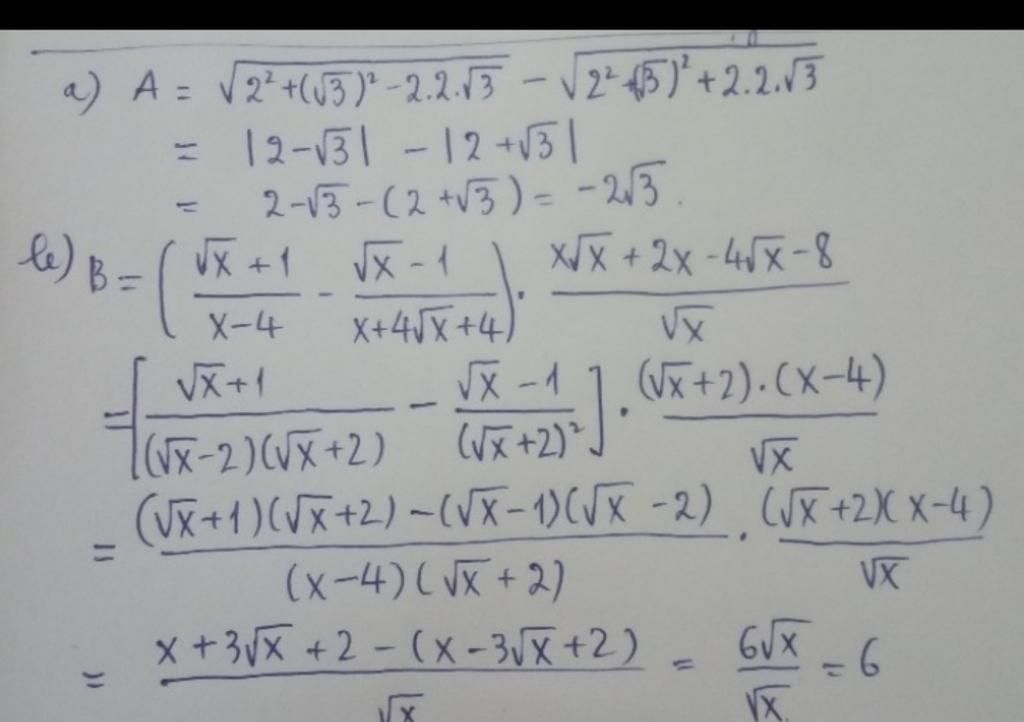 a) A = √(2² + (√3)² - 2.2.√3) - √(2² + (√3)² + 2.2.√3)
= |2 - √3| - |2 + √3|
= 2 - √3 - (2 + √3) = -2√3.
b) B = ( (√x + 1)/(x - 4) - (√x - 1)/(x + 4√x + 4) ) . (x√x + 2x - 4√x - 8)/√x
= [ (√x + 1)/((√x - 2)(√x + 2)) - (√x - 1)/(√x + 2)² ] . ((√x + 2).(x - 4))/√x
= ((√x + 1)(√x + 2) - (√x - 1)(√x - 2))/((x - 4)(√x + 2)) . ((√x + 2)(x - 4))/√x
= (x + 3√x + 2 - (x - 3√x + 2))/√x = 6√x/√x = 6